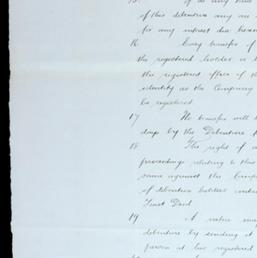 15 If at any time
of this debenture any one
for any interest due
16 Every transfer of
the registered holder
the registered office of the
identity as the Company
be registered
17 No transfer will
days by the Debenture
18 The right of
proceedings relating to this
same against the
of debenture holders
Trust Deed
19 A notice may
debenture by sending it
person at his registered